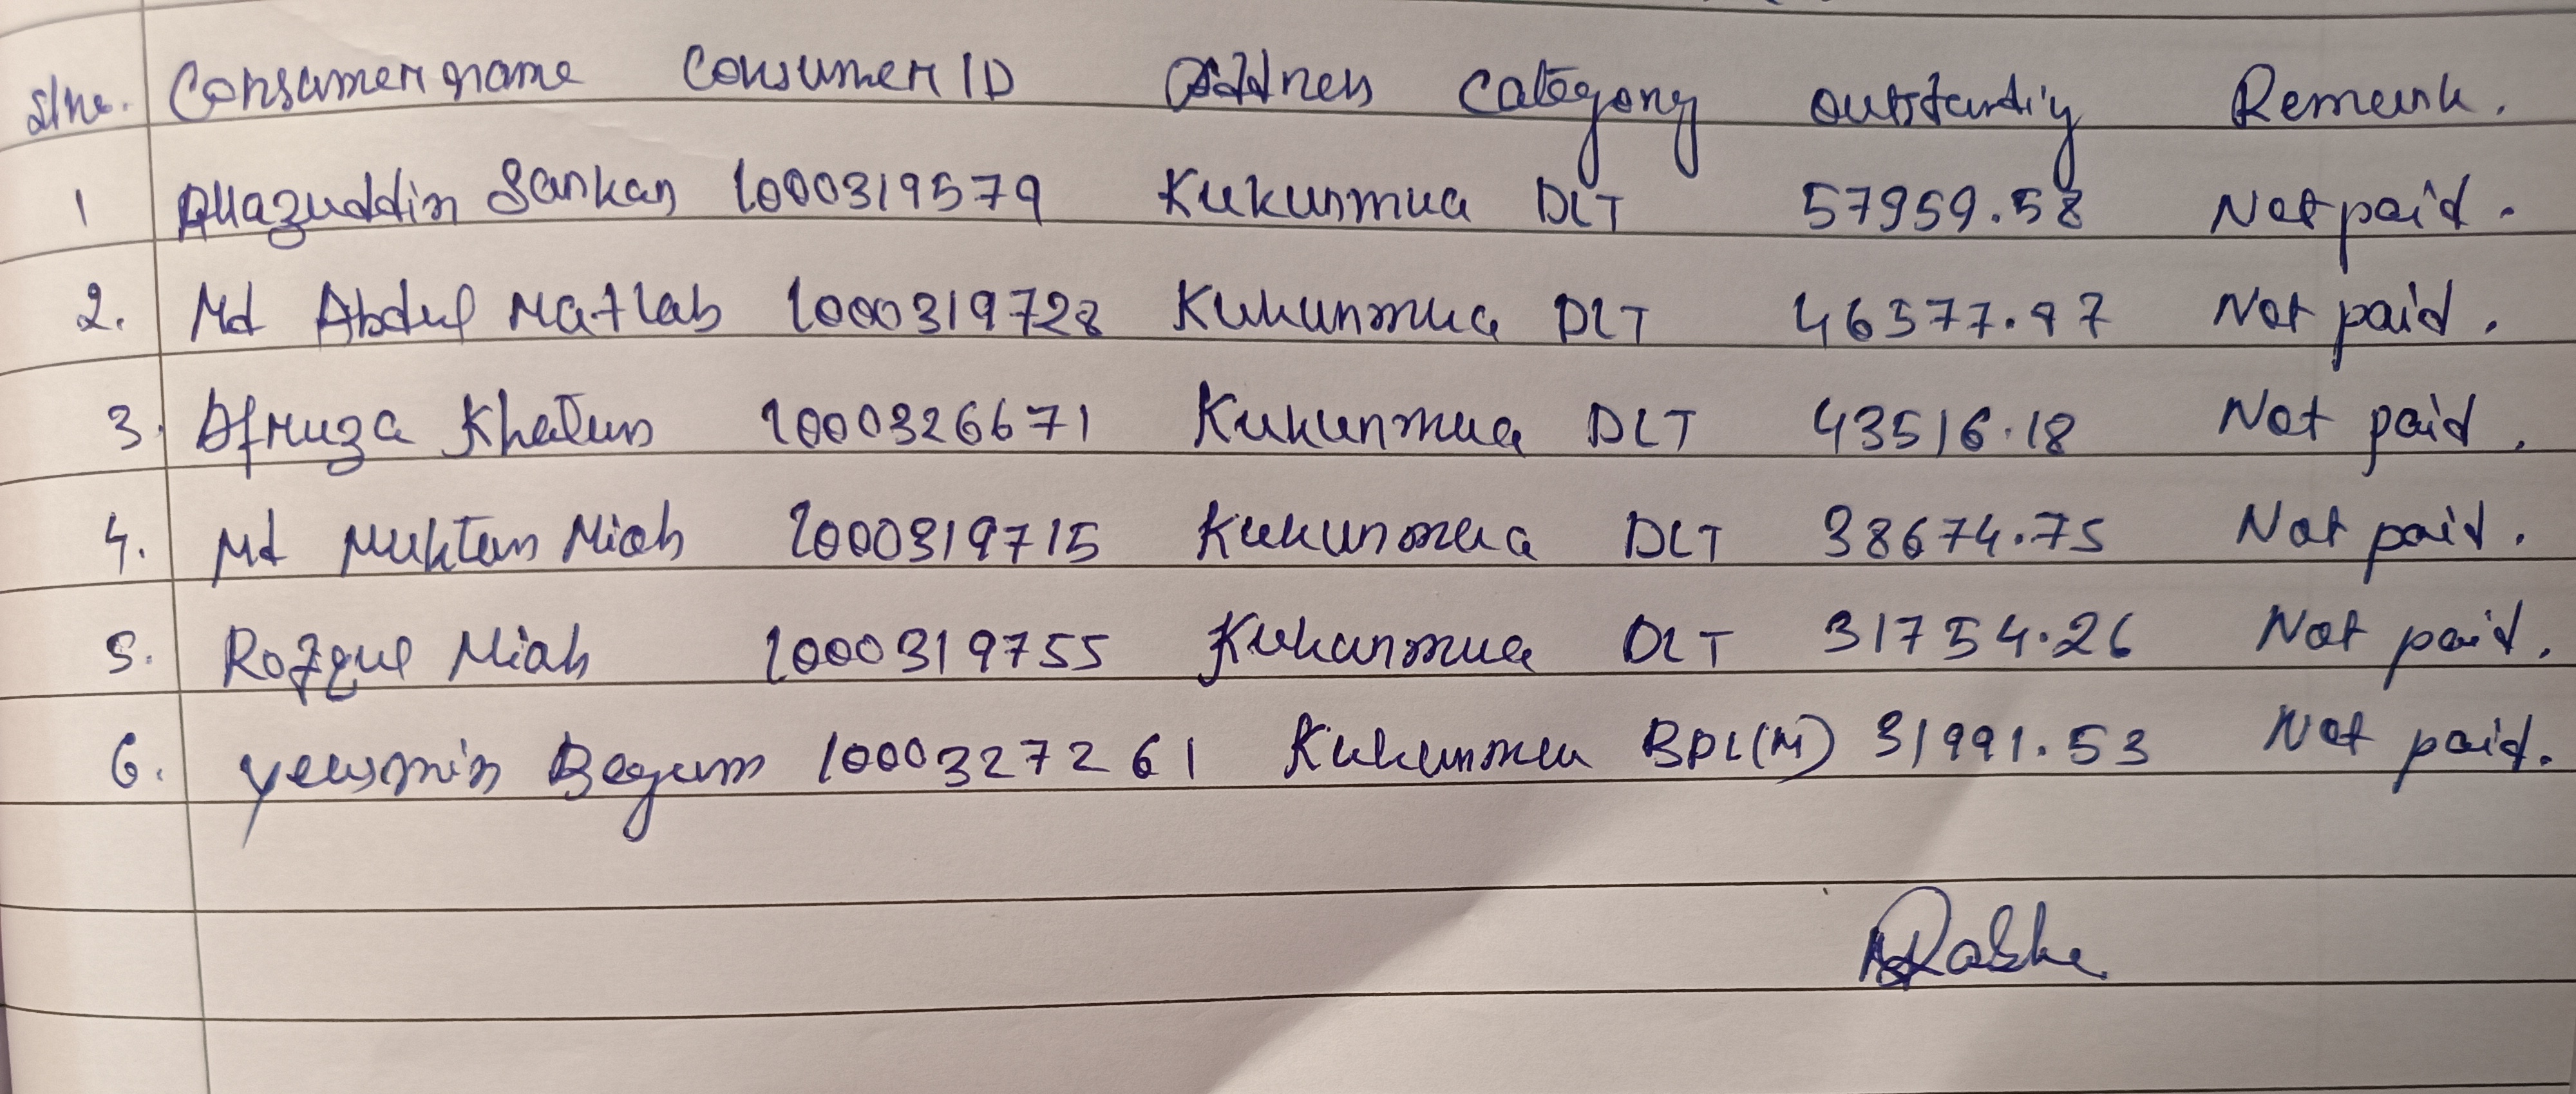 Sl no. Consumer name Consumer ID Address Category outstanding Remark.
1 Allazuddin Sarkar 1000319579 Kukurmua DLT 57959.58 Not paid.
2. Md Abdul Matlab 1000319728 Kukurmua DLT 46377.97 Not paid.
3. Afruza Khatun 1000326671 Kukurmua DLT 43516.18 Not paid.
4. Md Muktar Miah 1000319715 Kukurmua DLT 38674.75 Not paid.
5. Rofzqul Miah 1000319755 Kukurmua DLT 31754.26 Not paid.
6. Yeasmin Begum 1000327261 Kukurmua BPL(M) 31991.53 Not paid.